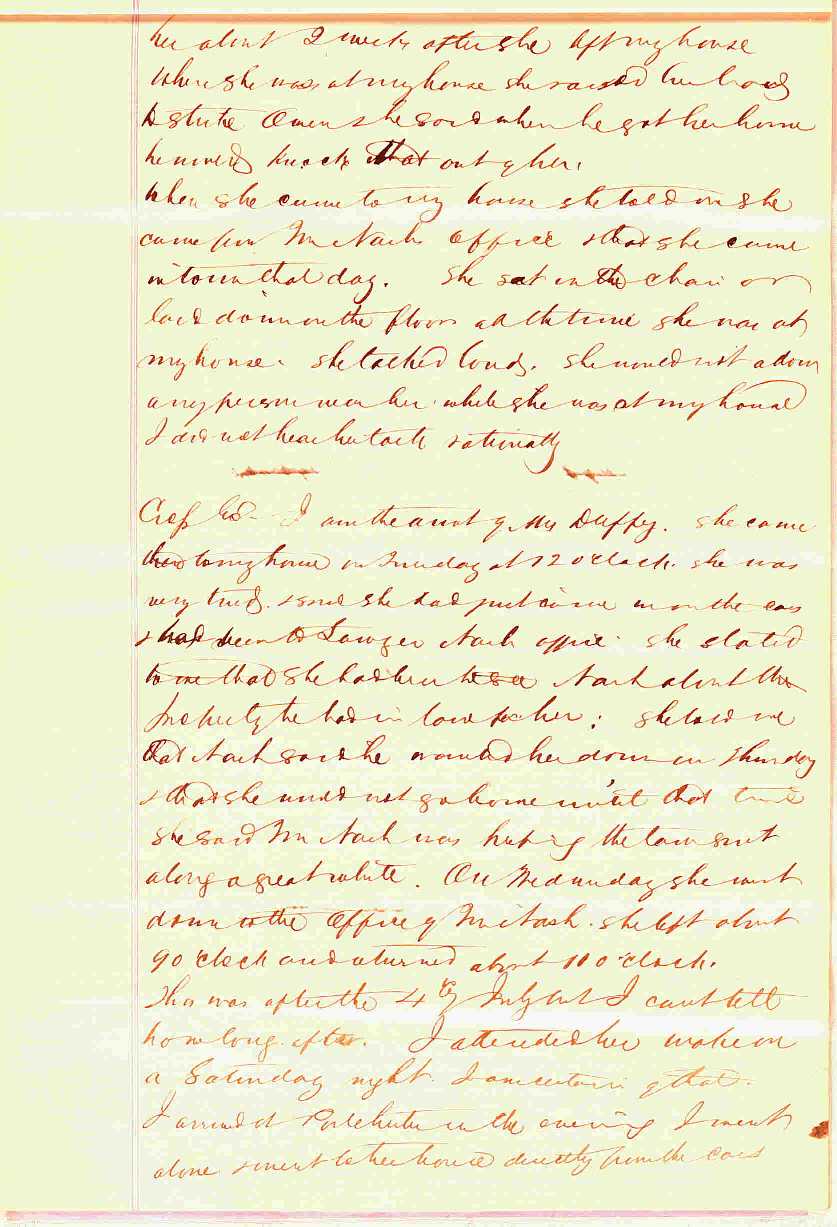 her about 2 weeks after she left my house
When she was at my house she raised her hand
to strike Owen & she said when he got her home
he would knock that out of her.
When she came to my house she told me she
came from Mr Nash Office & that she came
in town that day. She sat in the chair or
laid down on the floor all the time she was at
my house. she talked loud. She would not allow
any person near her while she was at my house
I did not hear her talk rationally
Cross Exd - I am the aunt of Mrs Duffy. she came
to my house on Tuesday at 12 o'clock. she was
very tired. & said she had just come in on the cars
& had been to Lawyer Nash office. she stated
to me that she had been to see Nash about the
property he had in law for her; she told me
that Nash said he wanted her down on Thursday
& that she would not go home until that time
she said Mr Nash was keeping the law suit
along a great while. On Wednesday she went
down to the Office of Mr Nash. she left about
9 o'clock and returned about 11 o'clock.
This was after the 4th of July but I cant tell
how long after. I attended her wake on
a Saturday night. I am certain of that.
I arrived at in the evening I went
alone & went to her house directly from the cars